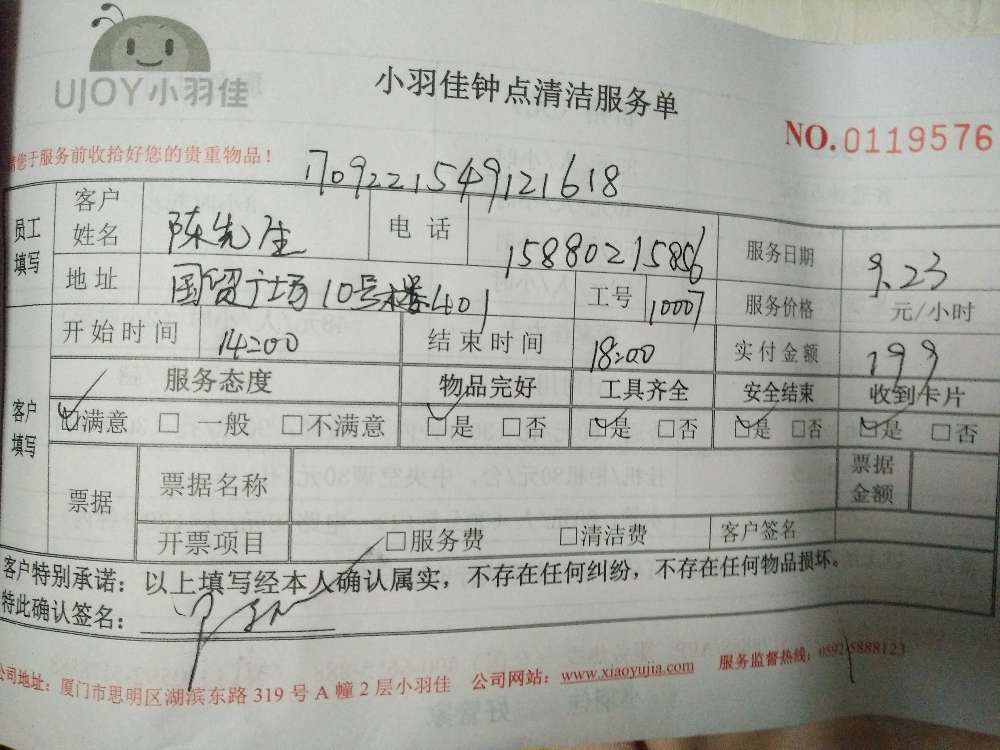 UJOY小羽佳
小羽佳钟点清洁服务单
NO.0119576
请您于服务前收拾好您的贵重物品！
1709221549121618
员工填写 客户姓名 陈先生 电话 15880215856 服务日期 9.23
地址 国贸广场10号楼401 工号 10007 服务价格 元/小时
开始时间 14:00 结束时间 18:00 实付金额 199
客户填写 服务态度 物品完好 工具齐全 安全结束 收到卡片
☑满意 □一般 □不满意 ☑是 □否 ☑是 □否 ☑是 □否 ☑是 □否
票据 票据名称 票据金额
开票项目 □服务费 □清洁费 客户签名
客户特别承诺：以上填写经本人确认属实，不存在任何纠纷，不存在任何物品损坏。
特此确认签名：
公司地址：厦门市思明区湖滨东路319号A幢2层小羽佳 公司网站：www.xiaoyujia.com 服务监督热线：0592-5888123